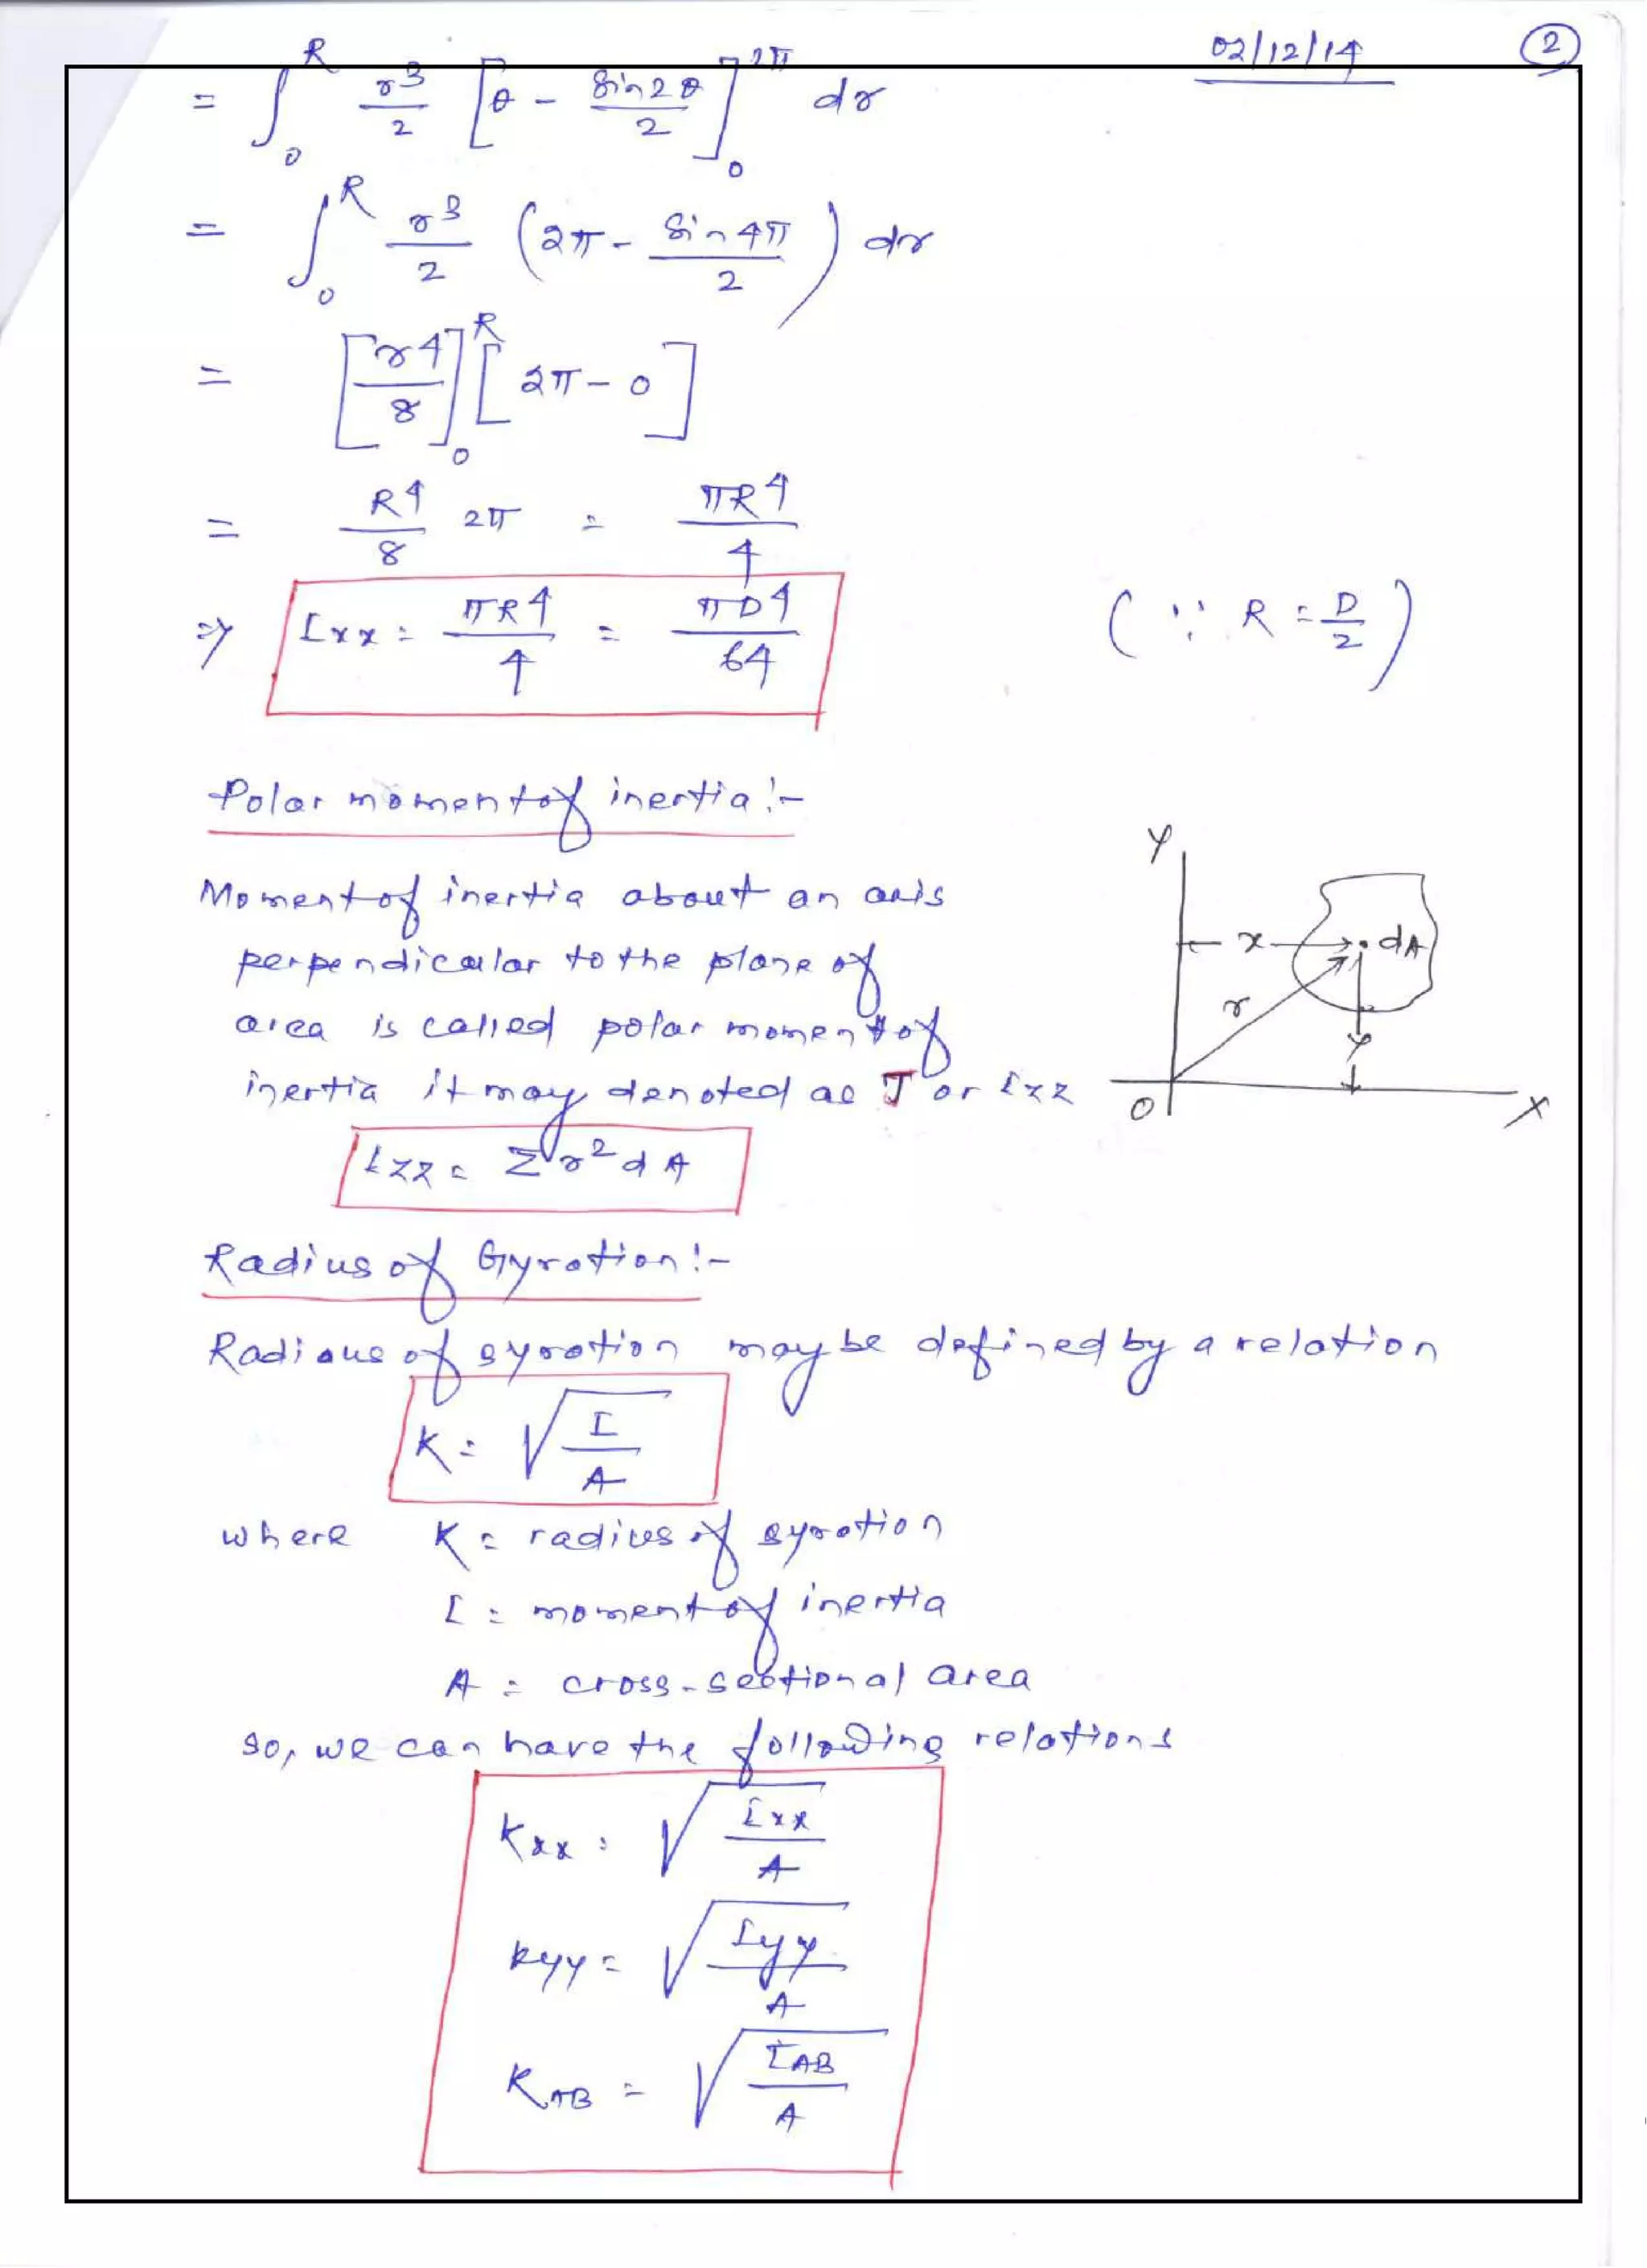 02/12/14 ②
= ∫₀ᴿ r³/2 [θ - sin2θ/2]₀^2π dr
= ∫₀ᴿ r³/2 (2π - sin4π/2) dr
= [r⁴/8]₀ᴿ [2π - 0]
= R⁴/8 2π = πR⁴/4
⇒ Ixx = πR⁴/4 = πD⁴/64 (∵ R = D/2)
Polar moment of inertia:-
Moment of inertia about an axis
perpendicular to the plane of
area is called polar moment of
inertia it may denoted as J or Izz
Izz = Σr²dA
Y
x dA
r
y
O X
Radius of Gyration:-
Radious of gyration may be defined by a relation
K = √(I/A)
where K = radius of gyration
I = moment of inertia
A = cross-sectional area
so, we can have the following relations
Kxx = √(Ixx/A)
Kyy = √(Iyy/A)
KAB = √(IAB/A)